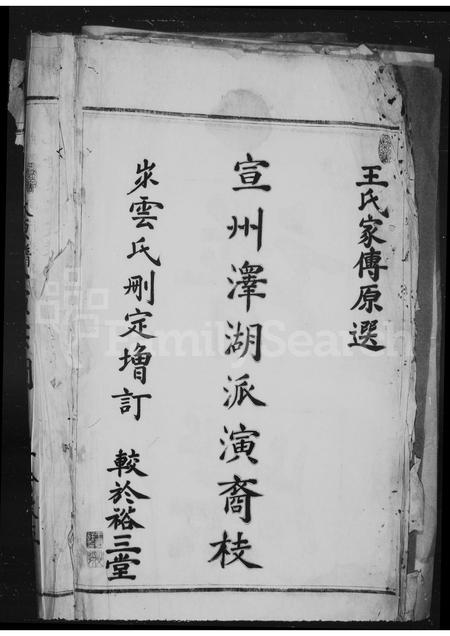 王氏家傳原選
宣州澤湖派演裔枝
雲氏刪定增訂
較於裕三堂
FamilySearch